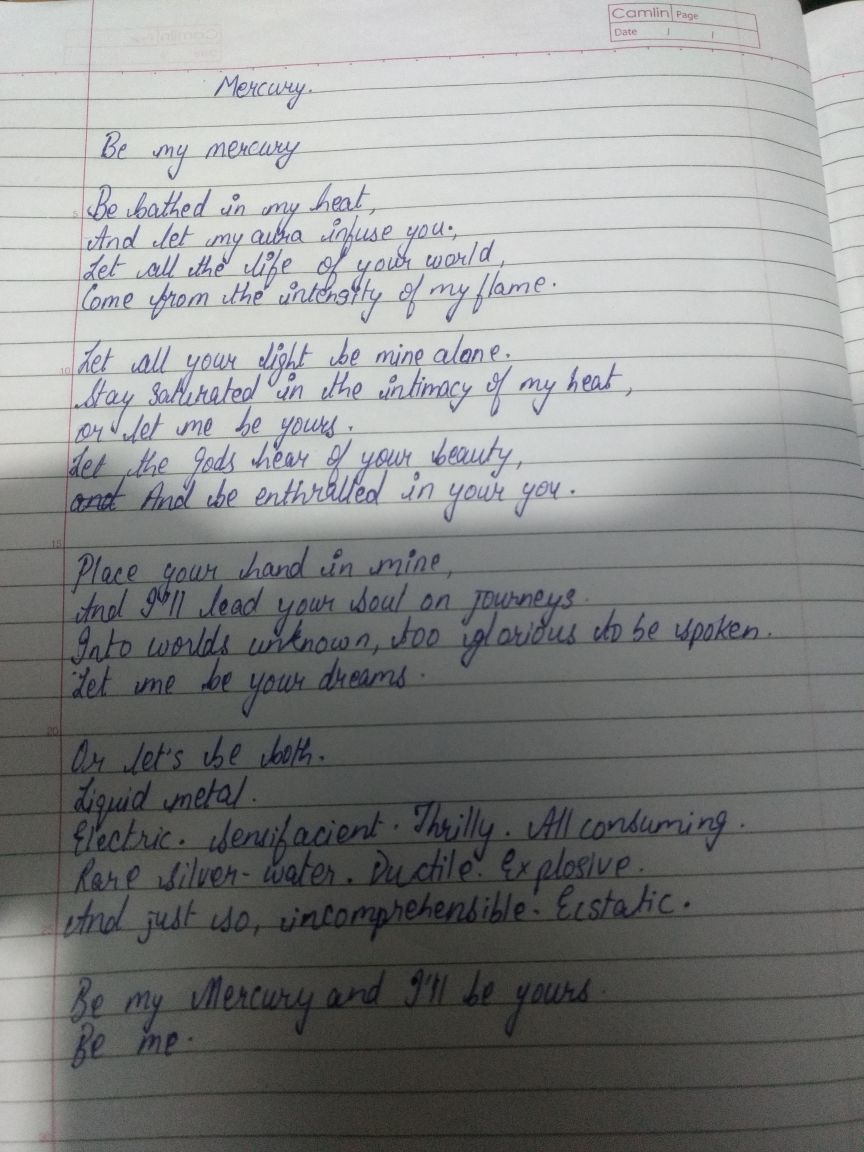 Camlin Page
Date / /
Mercury.
Be my mercury
Be bathed in my heat,
And let my aura infuse you.,
Let all the life of your world,
Come from the intensity of my flame.
Let all your light be mine alone.
Stay saturated in the intimacy of my heat,
or let me be yours.
Let the gods hear of your beauty,
and And be enthralled in your you.
Place your hand in mine,
And I'll lead your soul on journeys.
Into worlds unknown, too glorious to be spoken.
Let me be your dreams.
Or let's be both.
Liquid metal.
Electric. Sensifacient. Thrilly. All consuming.
Rare silver-water. Ductile. Explosive.
And just so, incomprehensible. Ecstatic.
Be my Mercury and I'll be yours.
Be me.